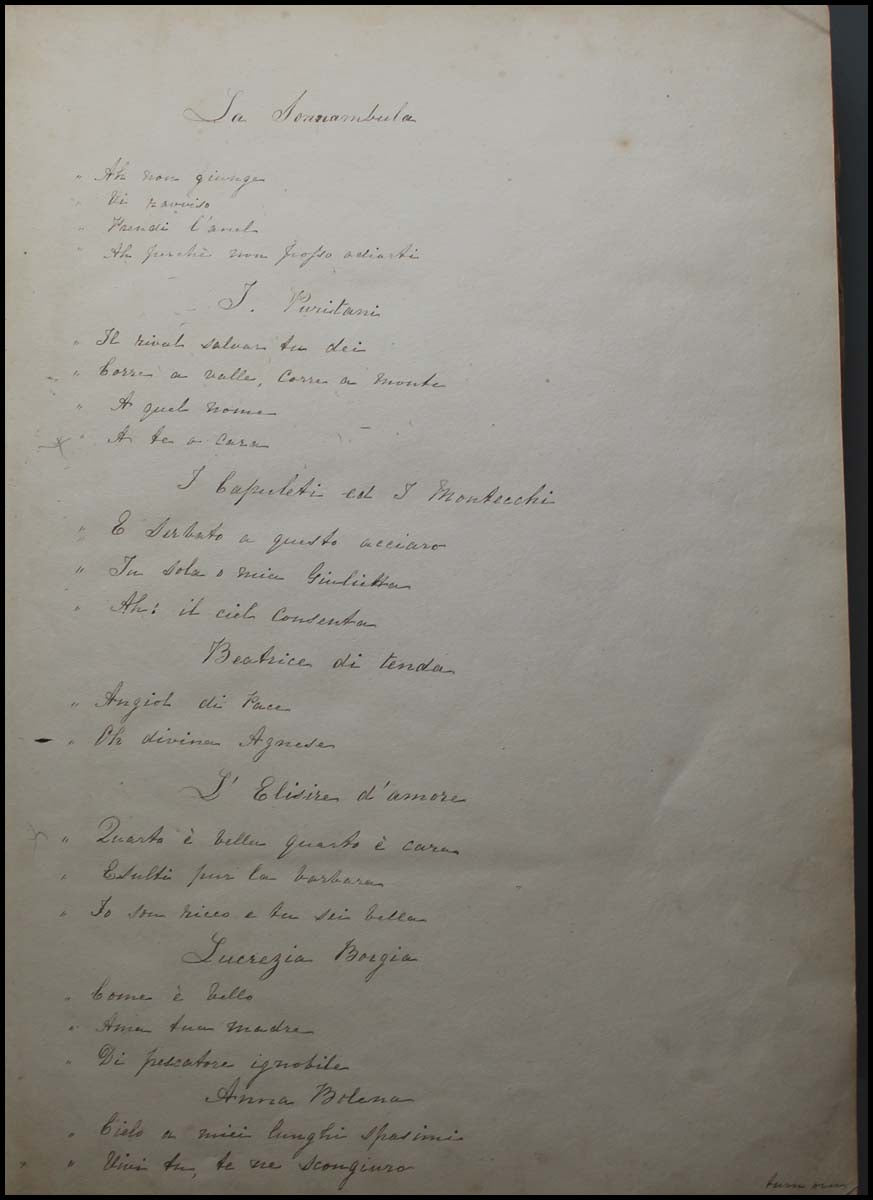 La Sonnambula
" Ah non giunge
" Vi ravviso
" Prendi l'anel
" Ah perchè non posso odiarti
I. Puritani
" Il rival salvar tu dei
" Corre a valle, corre a monte
" A quel nome
" A te o cara
I Capuleti ed I Montecchi
" E Serbato a questo acciaro
" Tu sola o mia Giulietta
" Ah: il ciel consenta
Beatrice di tenda
" Angiol di Pace
" Oh divina Agnese
L' Elisire d'amore
" Quarto è bella quarto è cara
" Esulti pur la barbara
" Io son ricco e tu sei bella
Lucrezia Borgia
" Come è bello
" Ama tua madre
" Di pescatore ignobile
Anna Bolena
" Cielo a miei lunghi spasimi
" Vivi tu, te ne scongiuro
turn over